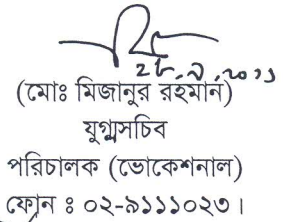 ২৮.৯.২০১১
(মোঃ মিজানুর রহমান)
যুগ্মসচিব
পরিচালক (ভোকেশনাল)
ফোন ঃ ০২-৯১১১০২৩।